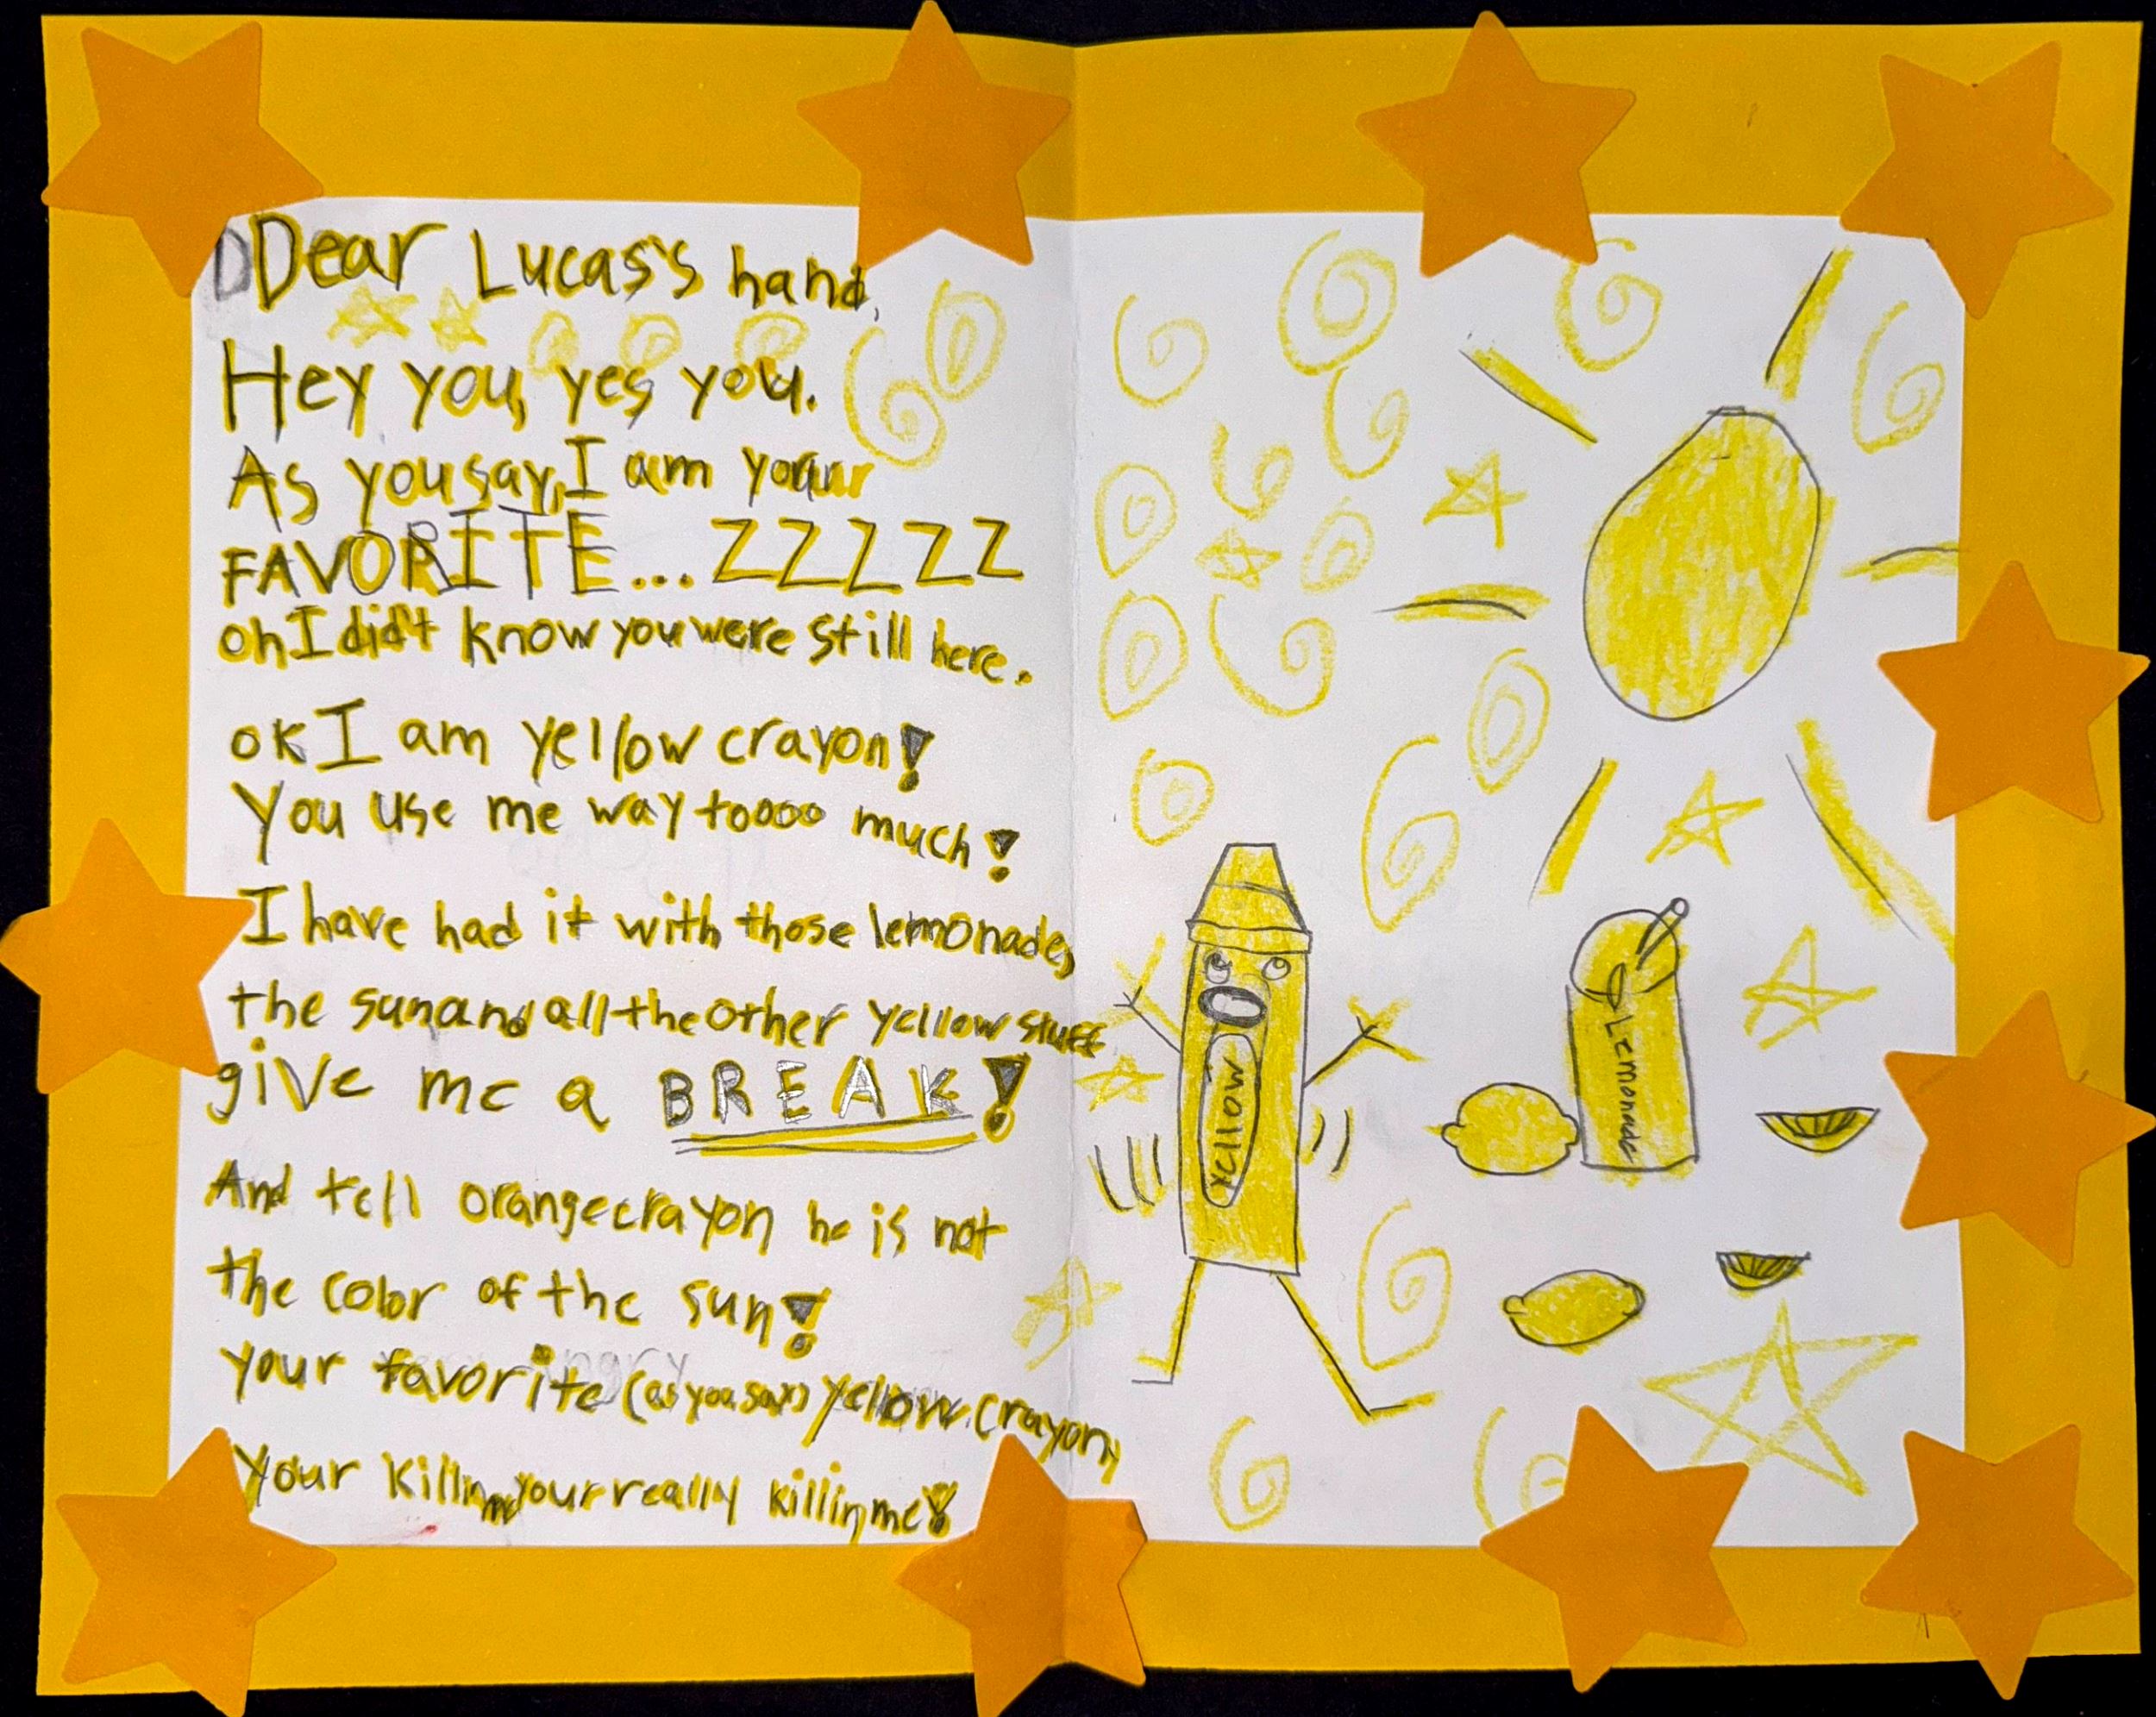 Dear Lucas's hand,
Hey you, yes you.
As you say, I am your
FAVORITE... ZZZZZ
oh I did't know you were still here.
ok I am yellow crayon!
You use me way toooo much!
I have had it with those lemonade,
the sun and all the other yellow stuff
give me a BREAK!
And tell orange crayon he is not
the color of the sun!
your favorite (as you say) yellow crayon,
Your killin me your really killin me!
Yellow
Lemonade